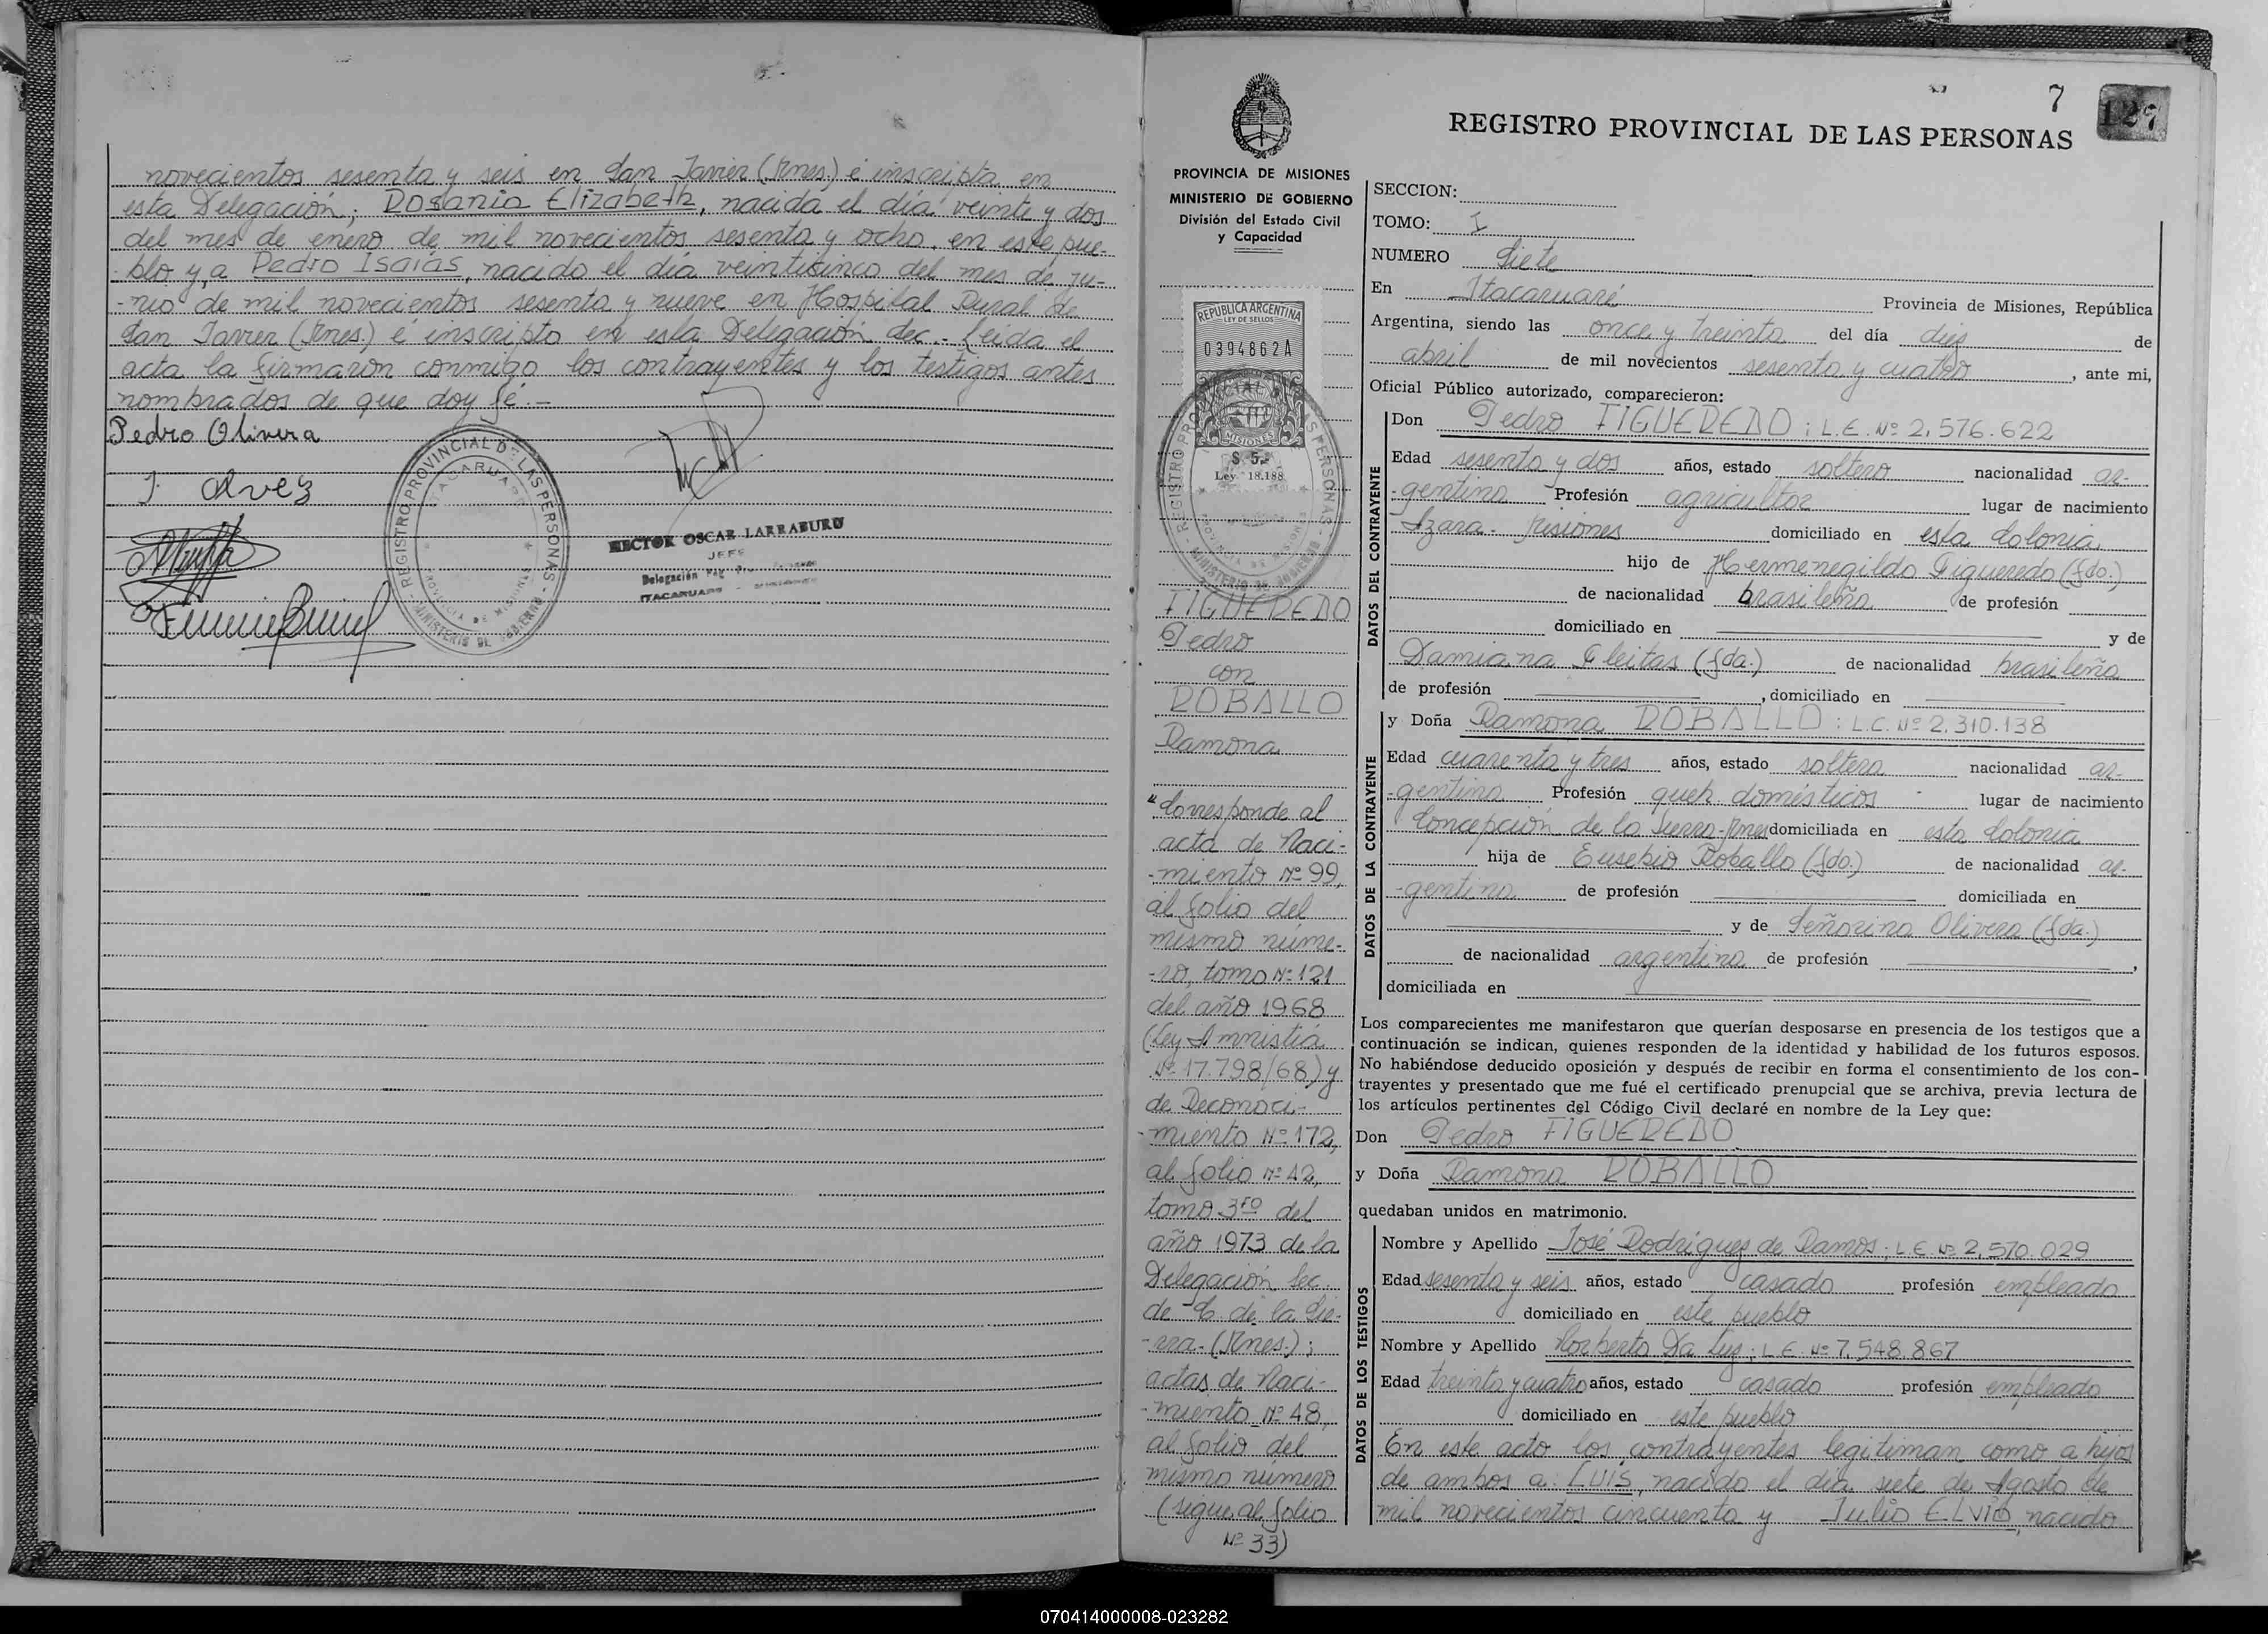 novecientos sesenta y seis en San Javier (Mnes.) é inscripta en
esta Delegación; Rosania Elizabeth, nacida el día veinte y dos
del mes de enero de mil novecientos sesenta y ocho en este pue-
blo y a Pedro Isaías, nacido el día veinticinco del mes de ju-
-nio de mil novecientos sesenta y nueve en Hospital Rural de
San Javier (Mnes.) é inscripto en esta Delegación Sec.- Leida el
acta la firmaron conmigo los contrayentes y los testigos antes
nombrados de que doy fé.-
Pedro Olivera
J. Alvez
REGISTRO PROVINCIAL DE LAS PERSONAS
ITACARUARE
PROVINCIA DE MISIONES
MINISTERIO DE GOBIERNO
HECTOR OSCAR LARRABURU
JEFE
Delegación
ITACARUARE
7
127
REGISTRO PROVINCIAL DE LAS PERSONAS
PROVINCIA DE MISIONES
MINISTERIO DE GOBIERNO
División del Estado Civil
y Capacidad
REPUBLICA ARGENTINA
LEY DE SELLOS
0394862A
MISIONES
$ 5.-
Ley 18.188
FIGUEREDO
Pedro
con
ROBALLO
Ramona
"Corresponde al
acta de Naci-
-miento Nº 99,
al folio del
mismo núme-
-ro, tomo Nº 121
del año 1968
(Ley Amnistía
Nº 17.798/68) y
de Reconoci-
-miento Nº 172,
al folio Nº 42,
tomo 3ro del
año 1973 de la
Delegación Sec.
de C. de la Sie-
-rra-(Mnes.);
actas de Naci-
-miento Nº 48,
al folio del
mismo número
(sigue al folio
Nº 33)
SECCION:
TOMO: I
NUMERO Siete
En Itacaruaré Provincia de Misiones, República
Argentina, siendo las once y treinta del día diez de
abril de mil novecientos sesenta y cuatro, ante mi,
Oficial Público autorizado, comparecieron:
DATOS DEL CONTRAYENTE
Don Pedro FIGUEREDO; L.E. Nº 2.576.622
Edad sesenta y dos años, estado soltero nacionalidad ar-
-gentina Profesión agricultor lugar de nacimiento
Azara-Misiones domiciliado en esta Colonia
hijo de Hermenegildo Figueredo (fdo.)
de nacionalidad brasileña de profesión
domiciliado en y de
Damiana Fleitas (fda.) de nacionalidad brasileña
de profesión , domiciliado en
DATOS DE LA CONTRAYENTE
y Doña Ramona ROBALLO; L.C. Nº 2.310.138
Edad cuarenta y tres años, estado soltera nacionalidad ar-
-gentina Profesión queh. domésticos lugar de nacimiento
Concepción de la Sierra-Mnes domiciliada en esta Colonia
hija de Eusebio Roballo (fdo.) de nacionalidad ar-
-gentina de profesión domiciliada en
y de Señorina Olivera (fda.)
de nacionalidad argentina de profesión ,
domiciliada en
Los comparecientes me manifestaron que querían desposarse en presencia de los testigos que a
continuación se indican, quienes responden de la identidad y habilidad de los futuros esposos.
No habiéndose deducido oposición y después de recibir en forma el consentimiento de los con-
trayentes y presentado que me fué el certificado prenupcial que se archiva, previa lectura de
los artículos pertinentes del Código Civil declaré en nombre de la Ley que:
Don Pedro FIGUEREDO
y Doña Ramona ROBALLO
quedaban unidos en matrimonio.
DATOS DE LOS TESTIGOS
Nombre y Apellido José Rodrigues de Ramos; L.E. Nº 2.570.029
Edad sesenta y seis años, estado casado profesión empleado
domiciliado en este pueblo
Nombre y Apellido Norberto Da Luz; L.E. Nº 7.548.867
Edad treinta y cuatro años, estado casado profesión empleado
domiciliado en este pueblo
En este acto los contrayentes legitiman como a hijos
de ambos a: LUIS, nacido el día siete de Agosto de
mil novecientos cincuenta y Julio ELVIO, nacido
070414000008-023282